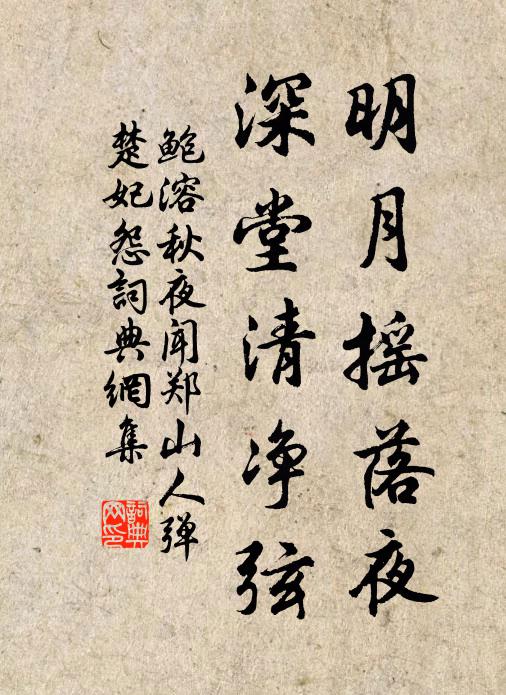 明月摇落夜
深堂清净弦
鲍溶秋夜闻郑山人弹
楚妃怨词典網集
詞典網印